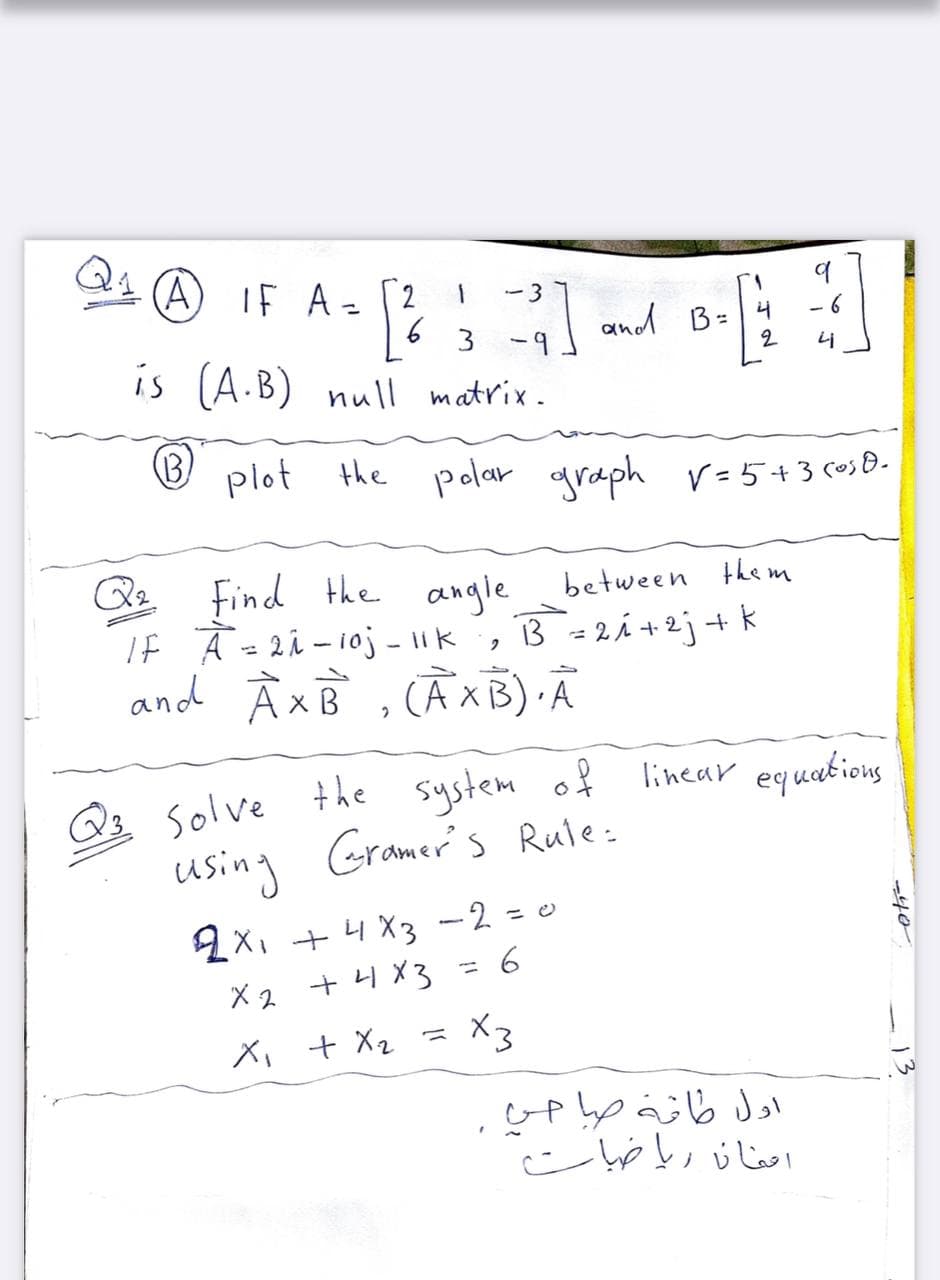 Q1 (A) IF A = [2 1 -3 / 6 3 -9] and B = [1 9 / 4 -6 / 2 4]
is (A.B) null matrix.
(B) plot the polar graph r = 5 + 3 cos θ.
Q2 Find the angle between them
IF A = 2i - 10j - 11k , B = 2i + 2j + k
and A × B , (A × B) . A
Q3 Solve the system of linear equations
using Gramer's Rule:
2x1 + 4x3 - 2 = 0
x2 + 4x3 = 6
x1 + x2 = x3
اول طاقة صباحي
امتحان رياضيات
-40
-13